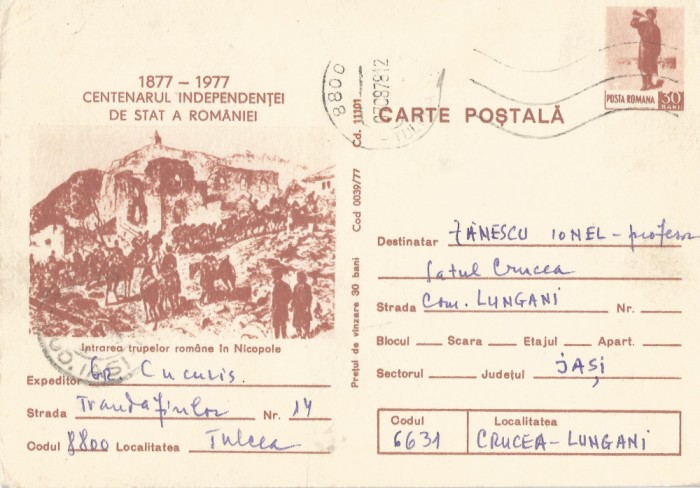 1877 – 1977
CENTENARUL INDEPENDENȚEI
DE STAT A ROMÂNIEI
Intrarea trupelor române în Nicopole
Expeditor Gr Cucuris.
Strada Trandafirilor Nr. 14
Codul 8800 Localitatea Tulcea
Prețul de vînzare 30 bani Cod 0039/77 Cd. 11101
8800
07087812
POSTA ROMANA 30
BANI
CARTE POȘTALĂ
Destinatar ZĂNESCU IONEL – profesor
Satul Crucea
Strada Com. LUNGANI Nr.
Blocul Scara Etajul Apart.
Sectorul Județul IAȘI
Codul Localitatea
6631 CRUCEA – LUNGANI